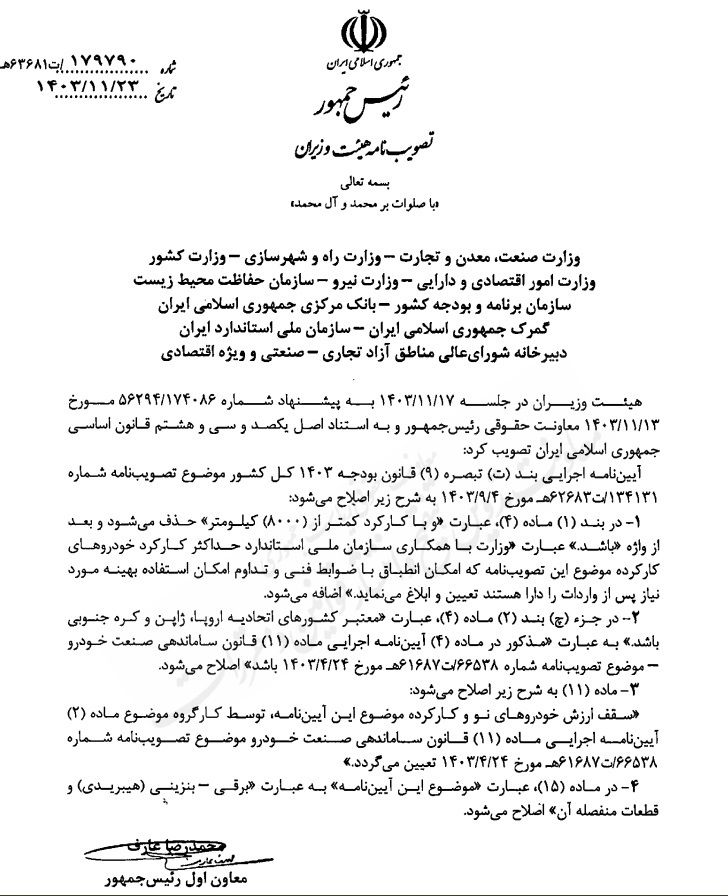 جمهوری اسلامی ایران
رئیس جمهور
تصویب نامه هیئت وزیران
شماره ۱۷۹۷۹۰/ت۶۳۶۸۱هـ
تاریخ ۱۴۰۳/۱۱/۲۳
بسمه تعالی
«با صلوات بر محمد و آل محمد»
وزارت صنعت، معدن و تجارت – وزارت راه و شهرسازی – وزارت کشور
وزارت امور اقتصادی و دارایی – وزارت نیرو – سازمان حفاظت محیط زیست
سازمان برنامه و بودجه کشور – بانک مرکزی جمهوری اسلامی ایران
گمرک جمهوری اسلامی ایران – سازمان ملی استاندارد ایران
دبیرخانه شورای‌عالی مناطق آزاد تجاری – صنعتی و ویژه اقتصادی
هیئت وزیران در جلسه ۱۴۰۳/۱۱/۱۷ به پیشنهاد شماره ۵۶۲۹۴/۱۷۴۰۸۶ مورخ
۱۴۰۳/۱۱/۱۳ معاونت حقوقی رئیس‌جمهور و به استناد اصل یکصد و سی و هشتم قانون اساسی
جمهوری اسلامی ایران تصویب کرد:
آیین‌نامه اجرایی بند (ت) تبصره (۹) قانون بودجه ۱۴۰۳ کل کشور موضوع تصویب‌نامه شماره
۱۳۴۱۳۱/ت۶۲۶۸۳هـ مورخ ۱۴۰۳/۹/۴ به شرح زیر اصلاح می‌شود:
۱- در بند (۱) ماده (۴)، عبارت «و با کارکرد کمتر از (۸۰۰۰) کیلومتر» حذف می‌شود و بعد
از واژه «باشد.» عبارت «وزارت با همکاری سازمان ملی استاندارد حداکثر کارکرد خودروهای
کارکرده موضوع این تصویب‌نامه که امکان انطباق با ضوابط فنی و تداوم امکان استفاده بهینه مورد
نیاز پس از واردات را دارا هستند تعیین و ابلاغ می‌نماید.» اضافه می‌شود.
۲- در جزء (چ) بند (۲) ماده (۴)، عبارت «معتبر کشورهای اتحادیه اروپا، ژاپن و کره جنوبی
باشد.» به عبارت «مذکور در ماده (۴) آیین‌نامه اجرایی ماده (۱۱) قانون ساماندهی صنعت خودرو
– موضوع تصویب‌نامه شماره ۶۶۵۳۸/ت۶۱۶۸۷هـ مورخ ۱۴۰۳/۴/۲۴ باشد» اصلاح می‌شود.
۳- ماده (۱۱) به شرح زیر اصلاح می‌شود:
«سقف ارزش خودروهای نو و کارکرده موضوع این آیین‌نامه، توسط کارگروه موضوع ماده (۲)
آیین‌نامه اجرایی ماده (۱۱) قانون ساماندهی صنعت خودرو موضوع تصویب‌نامه شماره
۶۶۵۳۸/ت۶۱۶۸۷هـ مورخ ۱۴۰۳/۴/۲۴ تعیین می‌گردد.»
۴- در ماده (۱۵)، عبارت «موضوع این آیین‌نامه» به عبارت «برقی – بنزینی (هیبریدی) و
قطعات منفصله آن» اصلاح می‌شود.
محمدرضا عارف
معاون اول رئیس‌جمهور